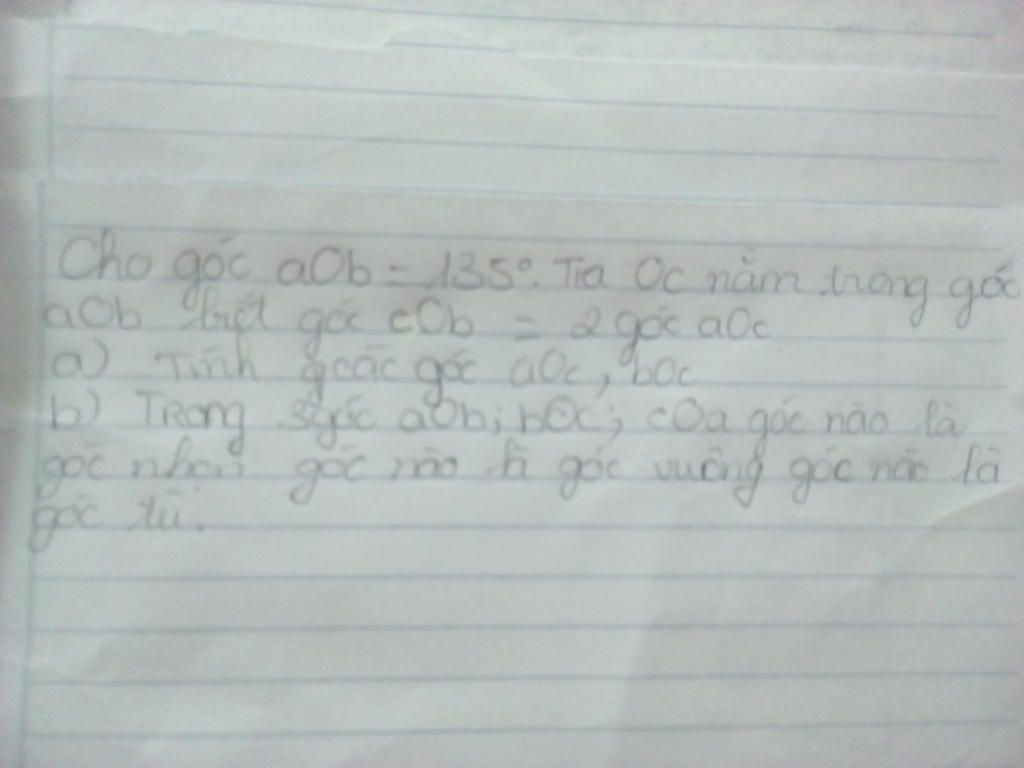 Cho góc aOb = 135°. Tia Oc nằm trong góc
aOb biết góc cOb = 2 góc aOc
a) Tính các góc aOc, bOc
b) Trong 3 góc aOb; bOc; cOa góc nào là
góc nhọn góc nào là góc vuông góc nào là
góc tù.